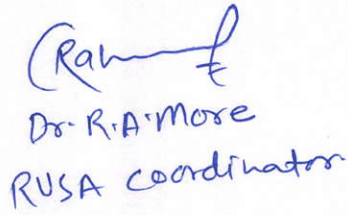 Dr. R.A. More
RUSA Coordinator